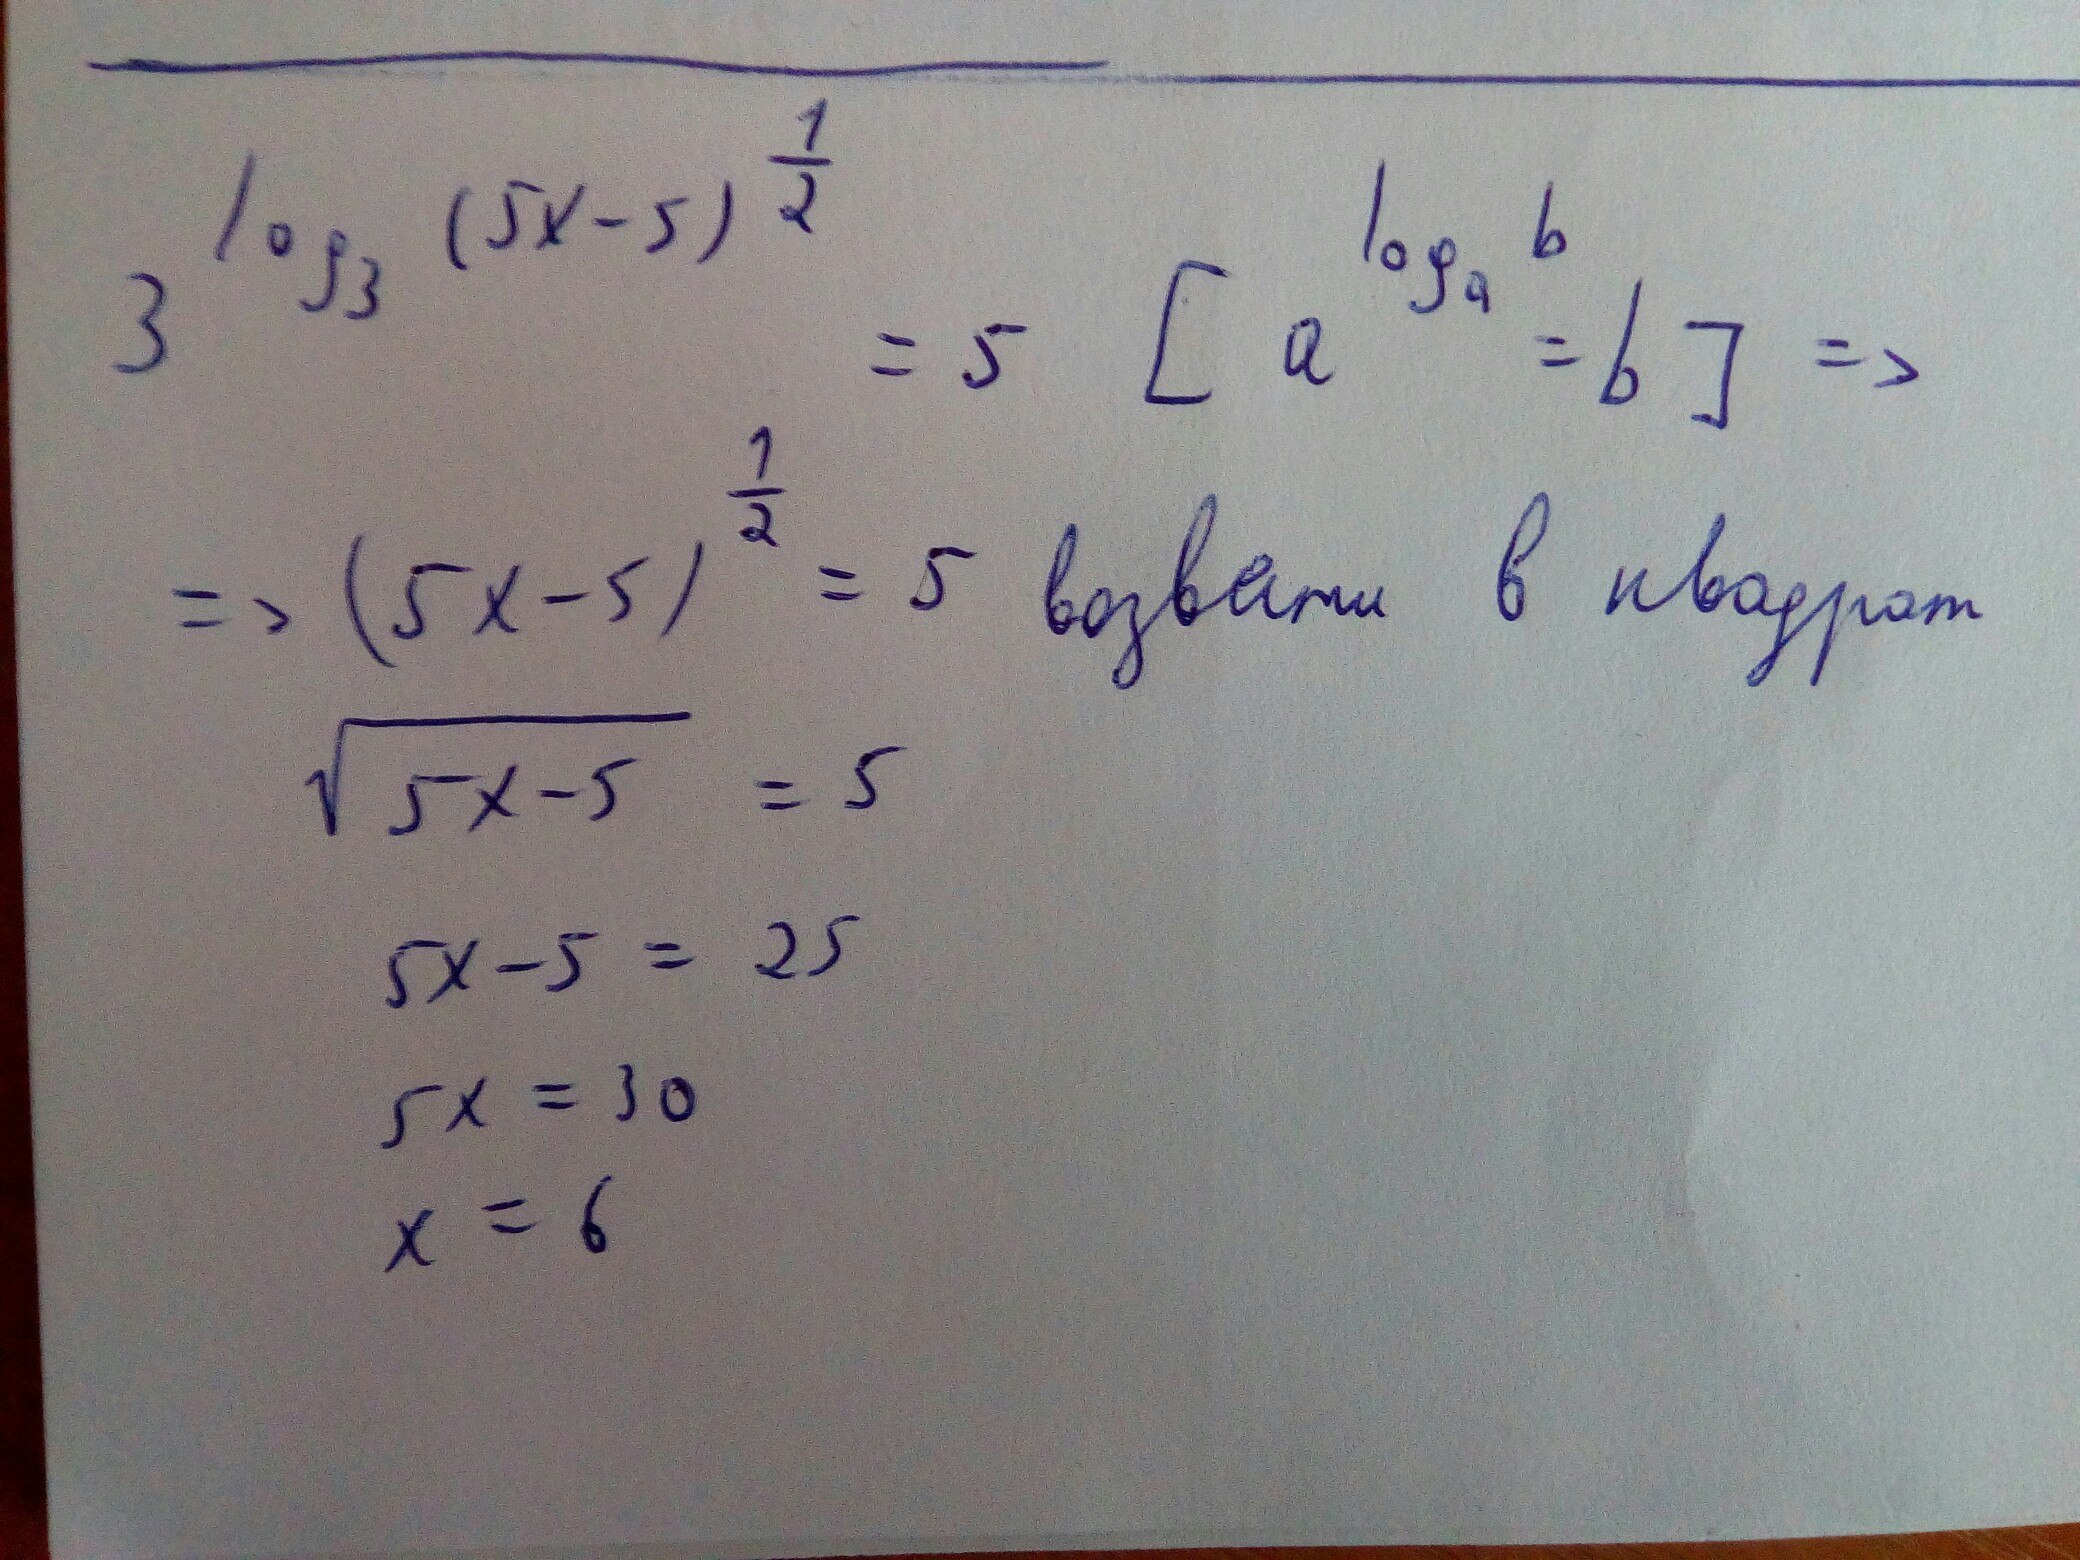 3^{log_3 (5x-5)^{1/2}} = 5 [a^{log_a b} = b] =>
=> (5x-5)^{1/2} = 5 возвести в квадрат
√(5x-5) = 5
5x-5 = 25
5x = 30
x = 6